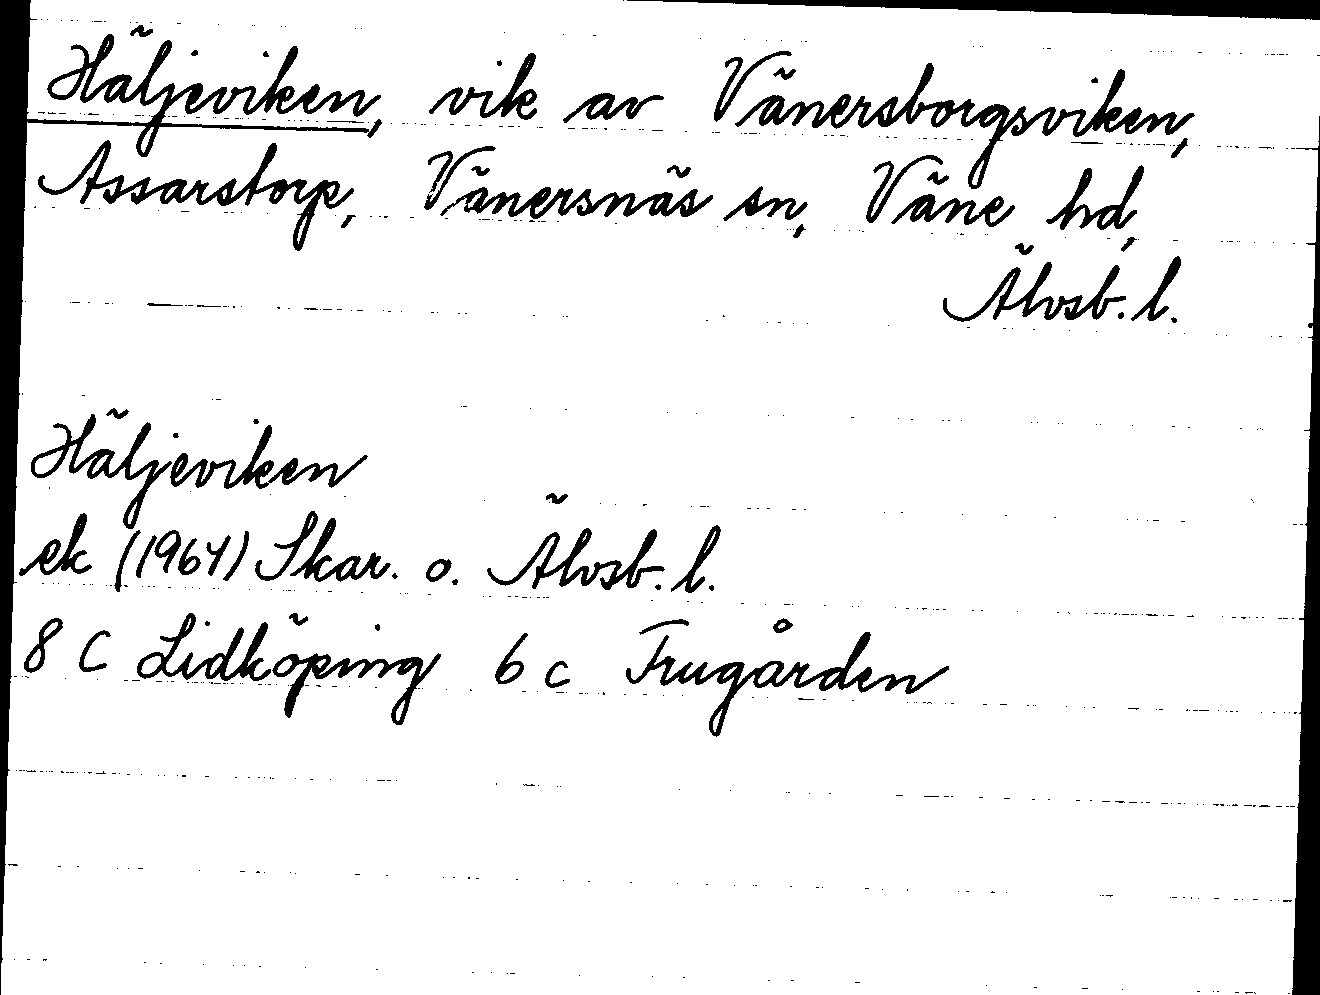 Häljeviken, vik av Vänersborgsviken,
Assarstorp, Vänersnäs sn, Väne hd,
Älvsb. l.
Häljeviken
ek (1964) Skar. o. Älvsb. l.
8 C Lidköping 6 c Frugården